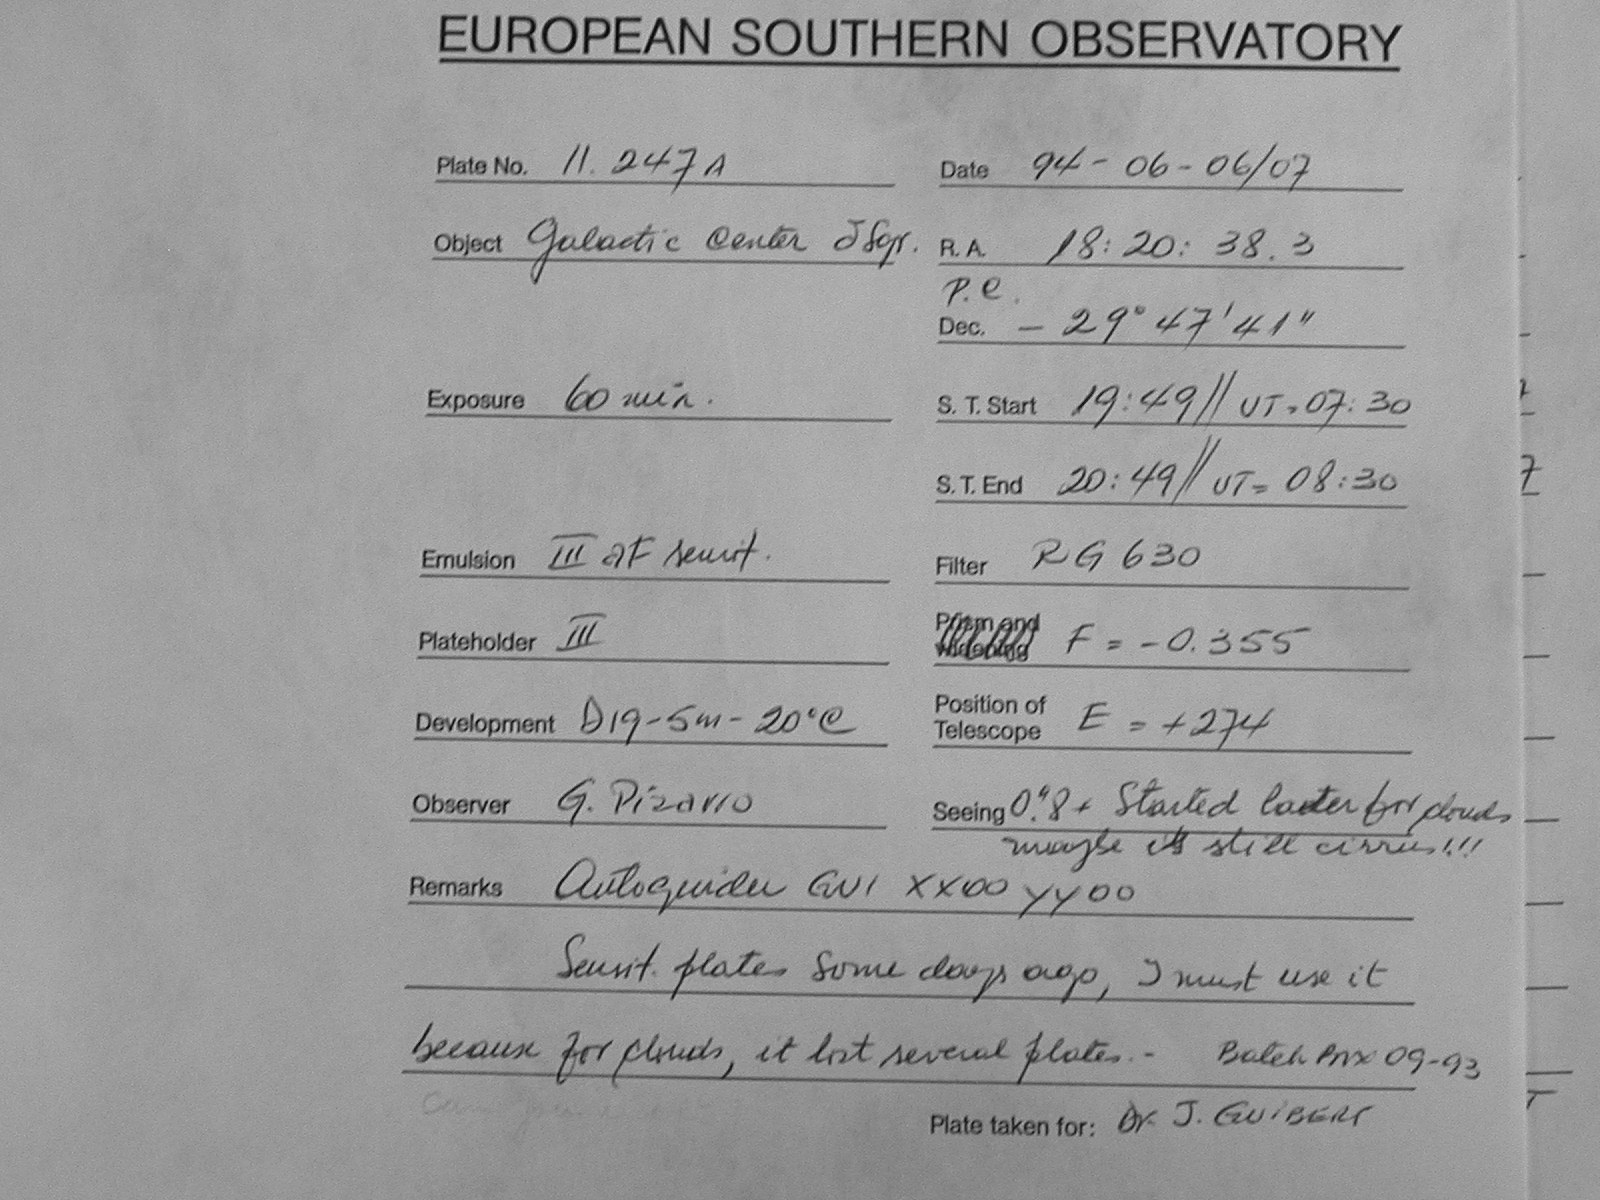 EUROPEAN SOUTHERN OBSERVATORY
Plate No. 11.247A Date 94-06-06/07
Object Galactic Center Sgr. R. A. 18:20:38.3
P.e.
Dec. -29°47'41"
Exposure 60 min. S. T. Start 19:49// UT=07:30
S. T. End 20:49// UT=08:30
Emulsion III aF sensit. Filter RG 630
Plateholder III Prism and widening F = -0.355
Development D19-5m-20°C Position of Telescope E = +274
Observer G. Pizarro Seeing 0."8+ Started later for clouds
maybe it's still cirrus!!!
Remarks Autoguider GUI XX00 YY00
Sensit. plates some days ago, I must use it
because for clouds, it lost several plates.- Batch 09-93
Plate taken for: Dr. J. GUIBERT